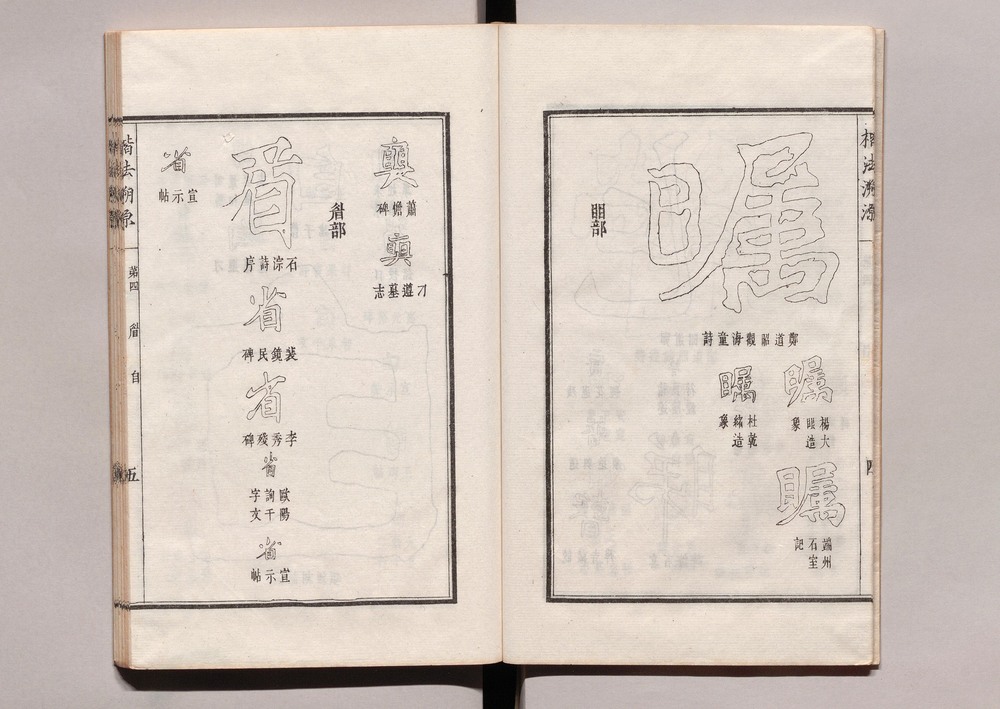 楷法溯源
四
矚
鄭道昭觀海童詩
矚
楊大眼造象
矚
端州石室記
矚
杜乾緒造象
䀠部
蕭憺碑
刁遵墓志
眉部
省
石淙詩序
省
裴鏡民碑
省
李秀殘碑
省
歐陽詢千字文
省
宣示帖
省
宣示帖
楷法溯原
弟四
眉
自
五